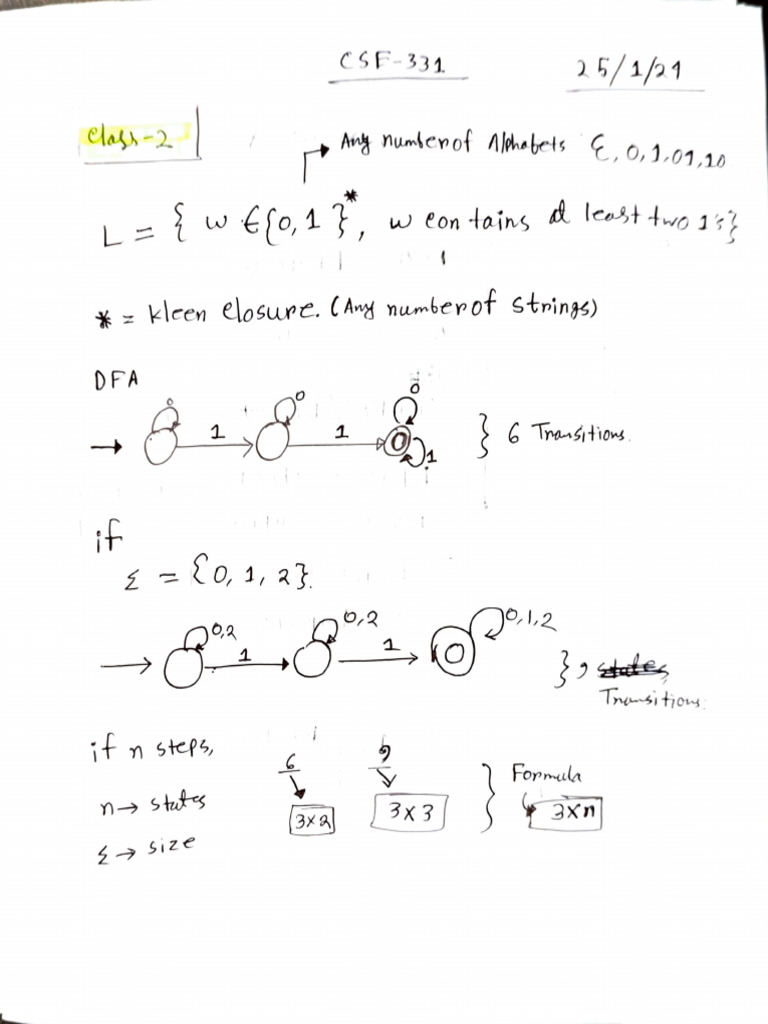 CSE-331
25/1/21
Class-2
Any number of Alphabets ε, 0, 1, 01, 10
L = { w ∈ {0, 1}*, w contains at least two 1's}
* = kleen closure. (Any number of strings)
DFA
0 0 0
→ 1 1 1 } 6 Transitions.
if
Σ = {0, 1, 2}.
0,2 0,2 0,1,2
→ 1 1 } 9 states
Transitions.
if n steps,
6 9 } Formula
n → states 3x2 3x3 3xn
Σ → size